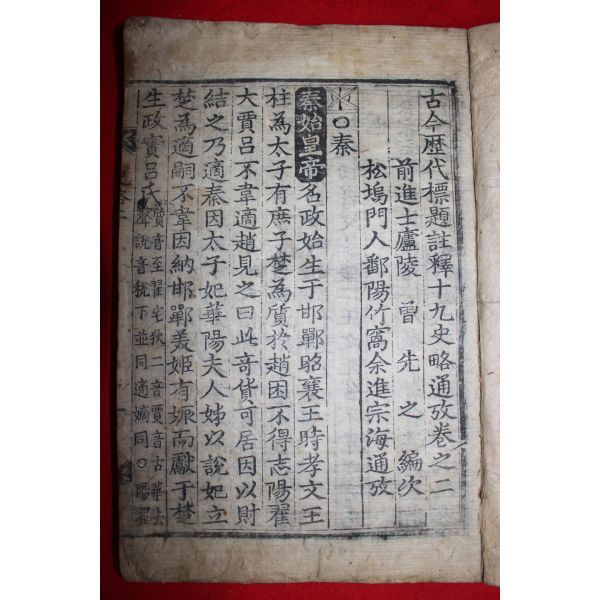 古今歷代標題註釋十九史略通攷卷之二
前進士廬陵曾先之編次
松塢門人鄱陽竹窩余進宗海通攷
秦
秦始皇帝名政始生于邯鄲昭襄王時孝文王
柱為太子有庶子楚為質於趙困不得志陽翟
大賈呂不韋適趙見之曰此奇貨可居因以財
結之乃適秦因太子妃華陽夫人姊以說妃立
楚為適嗣不韋因納邯鄲美姬有娠而獻于楚
生政實呂氏質音至翟宅狄二音賈音古華去
聲說音稅下並同適嫡同○陽翟